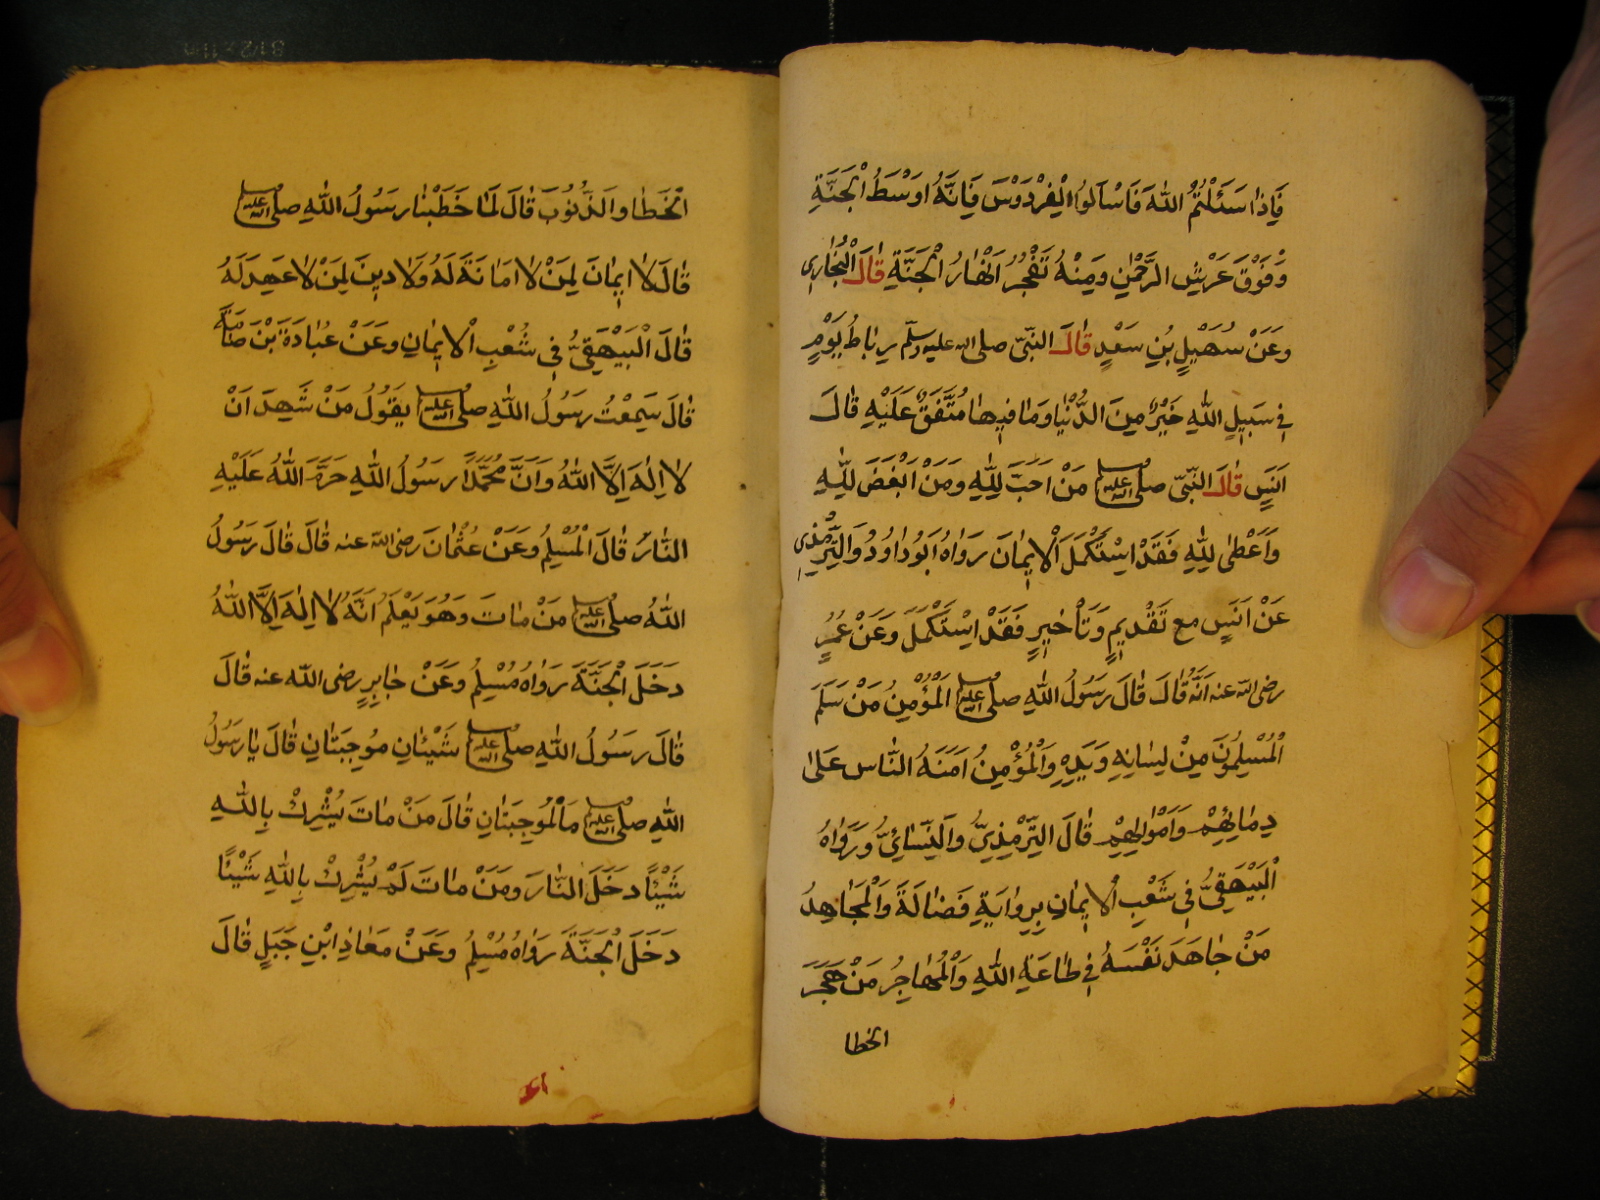 فَاِذَا سَئَلْتُمُ اللّٰهَ فَاسْاَلُوا الْفِرْدَوْسَ فَاِنَّهُ اَوْسَطُ الْجَنَّةِ
وَفَوْقَ عَرْشِ الرَّحْمٰنِ وَمِنْهُ تَفَجَّرُ اَنْهَارُ الْجَنَّةِ قَالَ الْبُخَارِي
وَعَنْ سُهَيْلِ بْنِ سَعْدٍ قَالَ النَّبِيّ صلى الله عليه وسلّم رِبَاطُ يَوْمٍ
فِي سَبِيلِ اللّٰهِ خَيْرٌ مِنَ الدُّنْيَا وَمَا فِيهَا مُتَّفَقٌ عَلَيْهِ قَالَ
اَنَسٍ قَالَ النَّبِيّ صلى الله عليه وسلم مَنْ اَحَبَّ لِلّٰهِ وَمَنْ اَبْغَضَ لِلّٰهِ
وَاَعْطٰى لِلّٰهِ فَقَدْ اِسْتَكْمَلَ الْاِيمَانَ رَوَاهُ اَبُو دَاوُدُ وَالتِّرْمِذِي
عَنْ اَنَسٍ مع تَقْدِيمٍ وَتَأْخِيرٍ فَقَدْ اِسْتَكْمَلَ وَعَنْ عُمَرٍ
رضى الله عنه اَنَّهُ قَالَ قَالَ رَسُولُ اللّٰهِ صلى الله عليه وسلم الْمُؤْمِنُ مَنْ سَلِمَ
الْمُسْلِمُونَ مِنْ لِسَانِهِ وَيَدِهِ وَالْمُؤْمِنُ اَمَنَهُ النَّاس عَلٰى
دِمَائِهِمْ وَاَمْوَالِهِمْ قَالَ التِّرْمِذِيُّ وَالنَّسَائِيُّ وَرَوَاهُ
الْبَيْهَقِيُّ فِي شَعْبِ الْاِيمَانِ بِرِوَايَةِ فَضَالَةَ وَالْمُجَاهِدُ
مَنْ جَاهَدَ نَفْسَهُ فِي طَاعَةِ اللّٰهِ وَالْمُهَاجِرُ مَنْ هَجَرَ
الخطا
الْخَطَا وَالذُّنُوبَ قَالَ لَمَّا خَطَبْنَا رَسُولُ اللّٰهِ صلى الله عليه وسلم
قَالَ لَا اِيمَانَ لِمَنْ لَا اَمَانَةَ لَهُ وَلَا دِينَ لِمَنْ لَا عَهِدَ لَهُ
قَالَ الْبَيْهَقِيُّ فِي شُعْبِ الْاِيمَانِ وَعَنْ عُبَادَةَ بْنَ صَامَةَ
قَالَ سَمِعْتُ رَسُولُ اللّٰهِ صلى الله عليه وسلم يَقُولُ مَنْ شَهِدَ اَنْ
لَا اِلٰهَ اِلَّا اللّٰهُ وَاَنَّ مُحَمَّدًا رَسُولُ اللّٰهِ حَرَّمَ اللّٰهُ عَلَيْهِ
النَّارُ قَالَ الْمُسْلِمُ وَعَنْ عُثْمَانَ رضى الله عنه قَالَ قَالَ رَسُولُ
اللّٰهُ صلى الله عليه وسلم مَنْ مَاتَ وَهُوَ يَعْلَمُ اَنَّهُ لَا اِلٰهَ اِلَّا اللّٰهُ
دَخَلَ الْجَنَّةَ رَوَاهُ مُسْلِمُ وَعَنْ جَابِرٍ رضى اللّٰه عنه قَالَ
قَالَ رَسُولُ اللّٰهِ صلى الله عليه وسلم شَيْئَانِ مُوجِبَتَانِ قَالَ يَا رَسُولُ
اللّٰهِ صلى الله عليه وسلم مَا لْمُوجِبَتَانِ قَالَ مَنْ مَاتَ يُشْرِكْ بِاللّٰهِ
شَيْئًا دَخَلَ النَّارَ وَمَنْ مَاتَ لَمْ يُشْرِكْ بِاللّٰهِ شَيْئًا
دَخَلَ الْجَنَّةَ رَوَاهُ مُسْلِمُ وَعَنْ مَعَاذِ ابْنِ جَبَلٍ قَالَ